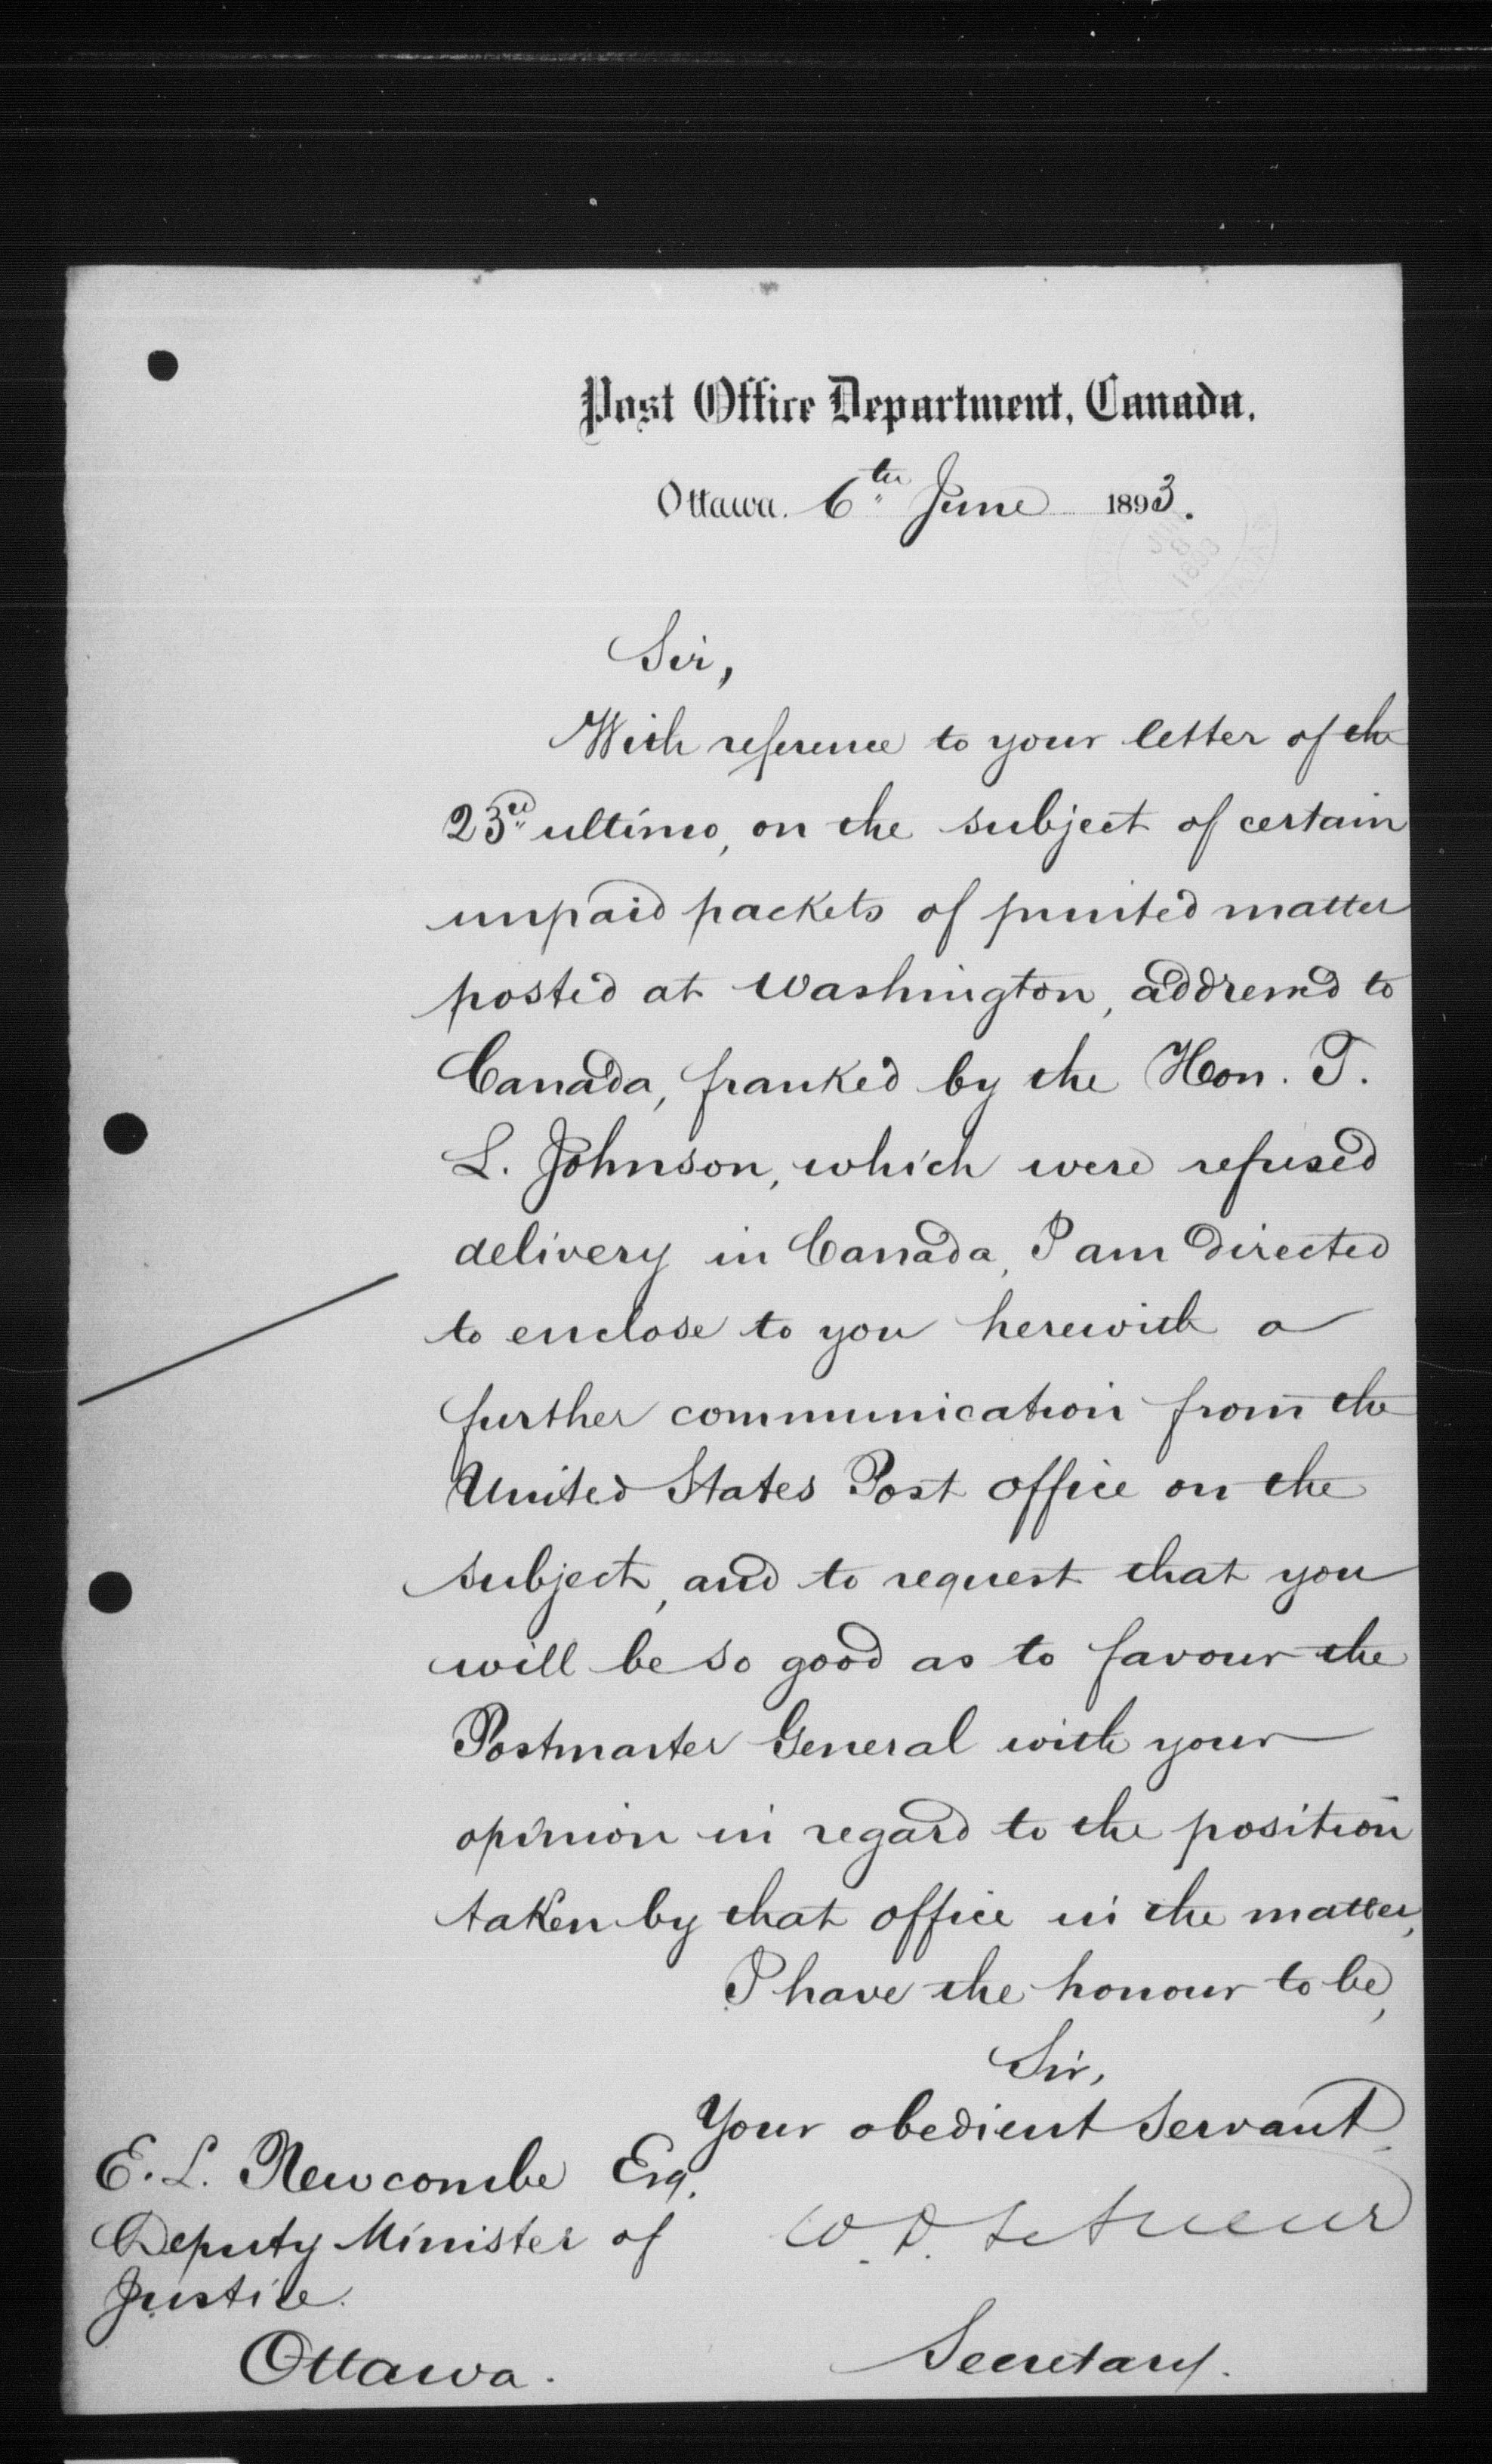 Post Office Department, Canada.
Ottawa. 6th June 1893.
JUN
8
1893
Sir,
With reference to your letter of the
23rd ultimo, on the subject of certain
unpaid packets of printed matter
posted at Washington, addressed to
Canada, franked by the Hon. T.
L. Johnson, which were refused
delivery in Canada, I am directed
to enclose to you herewith a
further communication from the
United States Post office on the
subject, and to request that you
will be so good as to favour the
Postmaster General with your
opinion in regard to the position
taken by that office in the matter,
I have the honour to be,
Sir,
Your obedient servant
E. L. Newcombe Esq.
W. D. LeSueur
Deputy Minister of
Justice.
Ottawa.
Secretary.